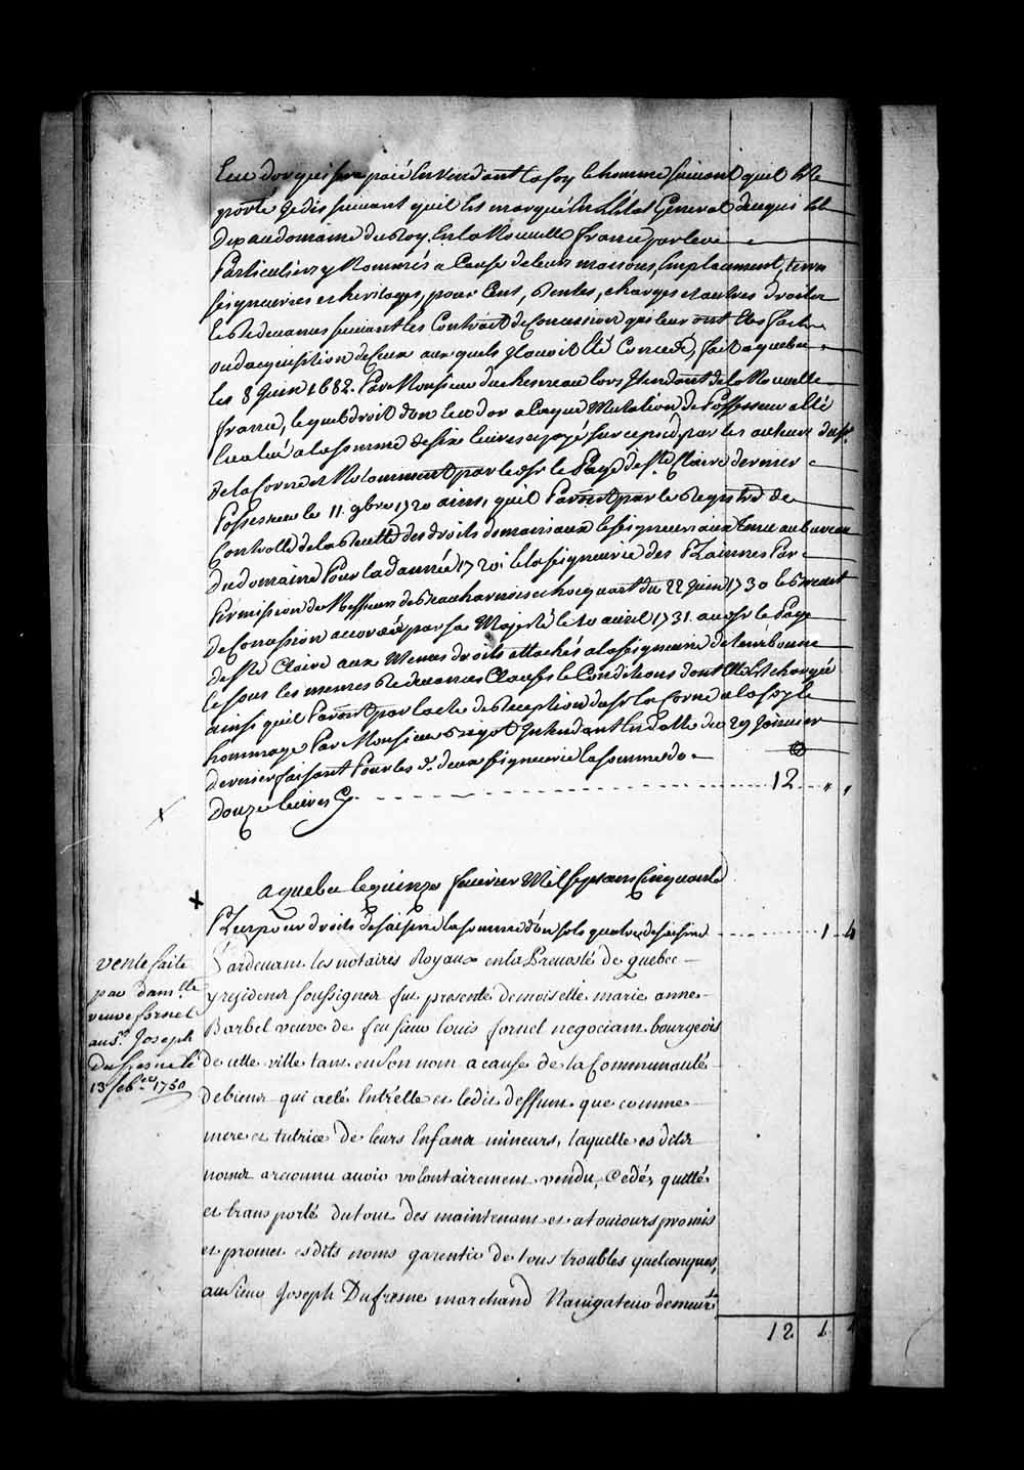 Ecu dor qui sera paié En Rendant la foy et homme suivant quil Este
porté Et dis suivant quil Est marqué En L'Etat General de ce qui Est
Du au domaine du Roy En la Nouvelle france par les
Particuliers y Nommés a Cause de leurs maisons, Emplacement, terres
seigneuries et heritages, pour Cens, Rentes, charges et autres droits
Et Redevances suivant les Contrats de Concession qui leur ont Etés faits
ou dacquisition de Ceux auxquels Il avoit Eté Concedé, fait a quebec
Les 8 Juin 1682. Par Monsieur duchesneau lors Intendant de la Nouvelle
france, lequel droit d'un Ecu dor a Chaque Mutation de Possesseur a Eté
Evalué a la somme de six Livres et payé sur ce pied, par les auteurs du Sr.
de la Corne Et Notamment par le Sr le Page de Ste Claire dernier
Possesseur le 11. 9bre 1720 ainsi quil Paroit par le Registre de
Controlle de la Recette des droits domaniaux et seigneuriaux tenu au bureau
du domaine Pour la d. année 1720; Et la seigneurie des Plaines Par
Permission de Messieurs de Beauharnois et hocquart du 22 Juin 1730 et Brevet
de Concession accordé par sa Majesté le 10 avril 1731. au Sr le Page
de Ste Claire aux Memes droits attachés a la seigneurie de terrebonne
et sous les memes Redevances Clauses et Conditions dont Elle Est chargée
ainsi quil Paroit par lacte de Reception du Sr la Corne a la foy et
hommage Par Monsieur Bigot Intendant En datte du 29 Janvier
dernier faisant Pour les d. deux seigneurie la somme de
Douze Livres Cy 12 " "
a quebec le quinze fevrier Mil sept cens Cinquante
Plus pour droits de saisine la somme d'un sols quatre de saisine 1 4
vente faite
par dam.lle
veuve fornel
au s.r Joseph
Dufresne le
13 feb.er 1750
Pardevant les notaires Royaux en la Prevosté de quebec
y residens soussignes fut presente demoiselle marie anne
Barbel veuve de feu sieur louis fornel negociant bourgeois
de cette ville tant en son nom a cause de la Communauté
de biens qui a eté Entr'elle et ledit deffunt que comme
mere et tutrice de leurs Enfans mineurs, laquelle es dits
noms a reconnu avoir volontairement vendu, Cedés quitté
et transporté du tout des maintenant et a toujours promis
et promet es dits noms garentir de tous troubles quelconques,
au Sieur Joseph Dufresne marchand Navigateur demeurt
12 1 4